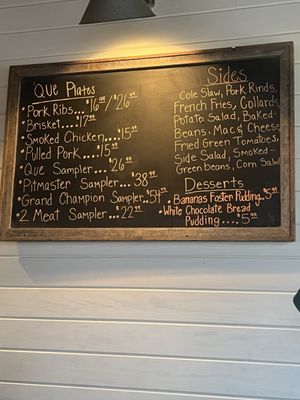 Que Plates
• Pork Ribs...$16.99/$26.99
• Brisket...$17.99
• Smoked Chicken....$15.99
• Pulled Pork....$15.99
• Que Sampler...$26.99
• Pitmaster Sampler...$38.99
• Grand Champion Sampler..$54.99
• 2 Meat Sampler....$22.99
Sides
Cole Slaw, Pork Rinds,
French Fries, Collards,
Potato Salad, Baked-
Beans, Mac & Cheese
Fried Green Tomatoes,
Side Salad, Smoked-
Green beans, Corn Salad
Desserts
• Bananas Foster Pudding..$5.99
• White Chocolate Bread
Pudding....$5.99